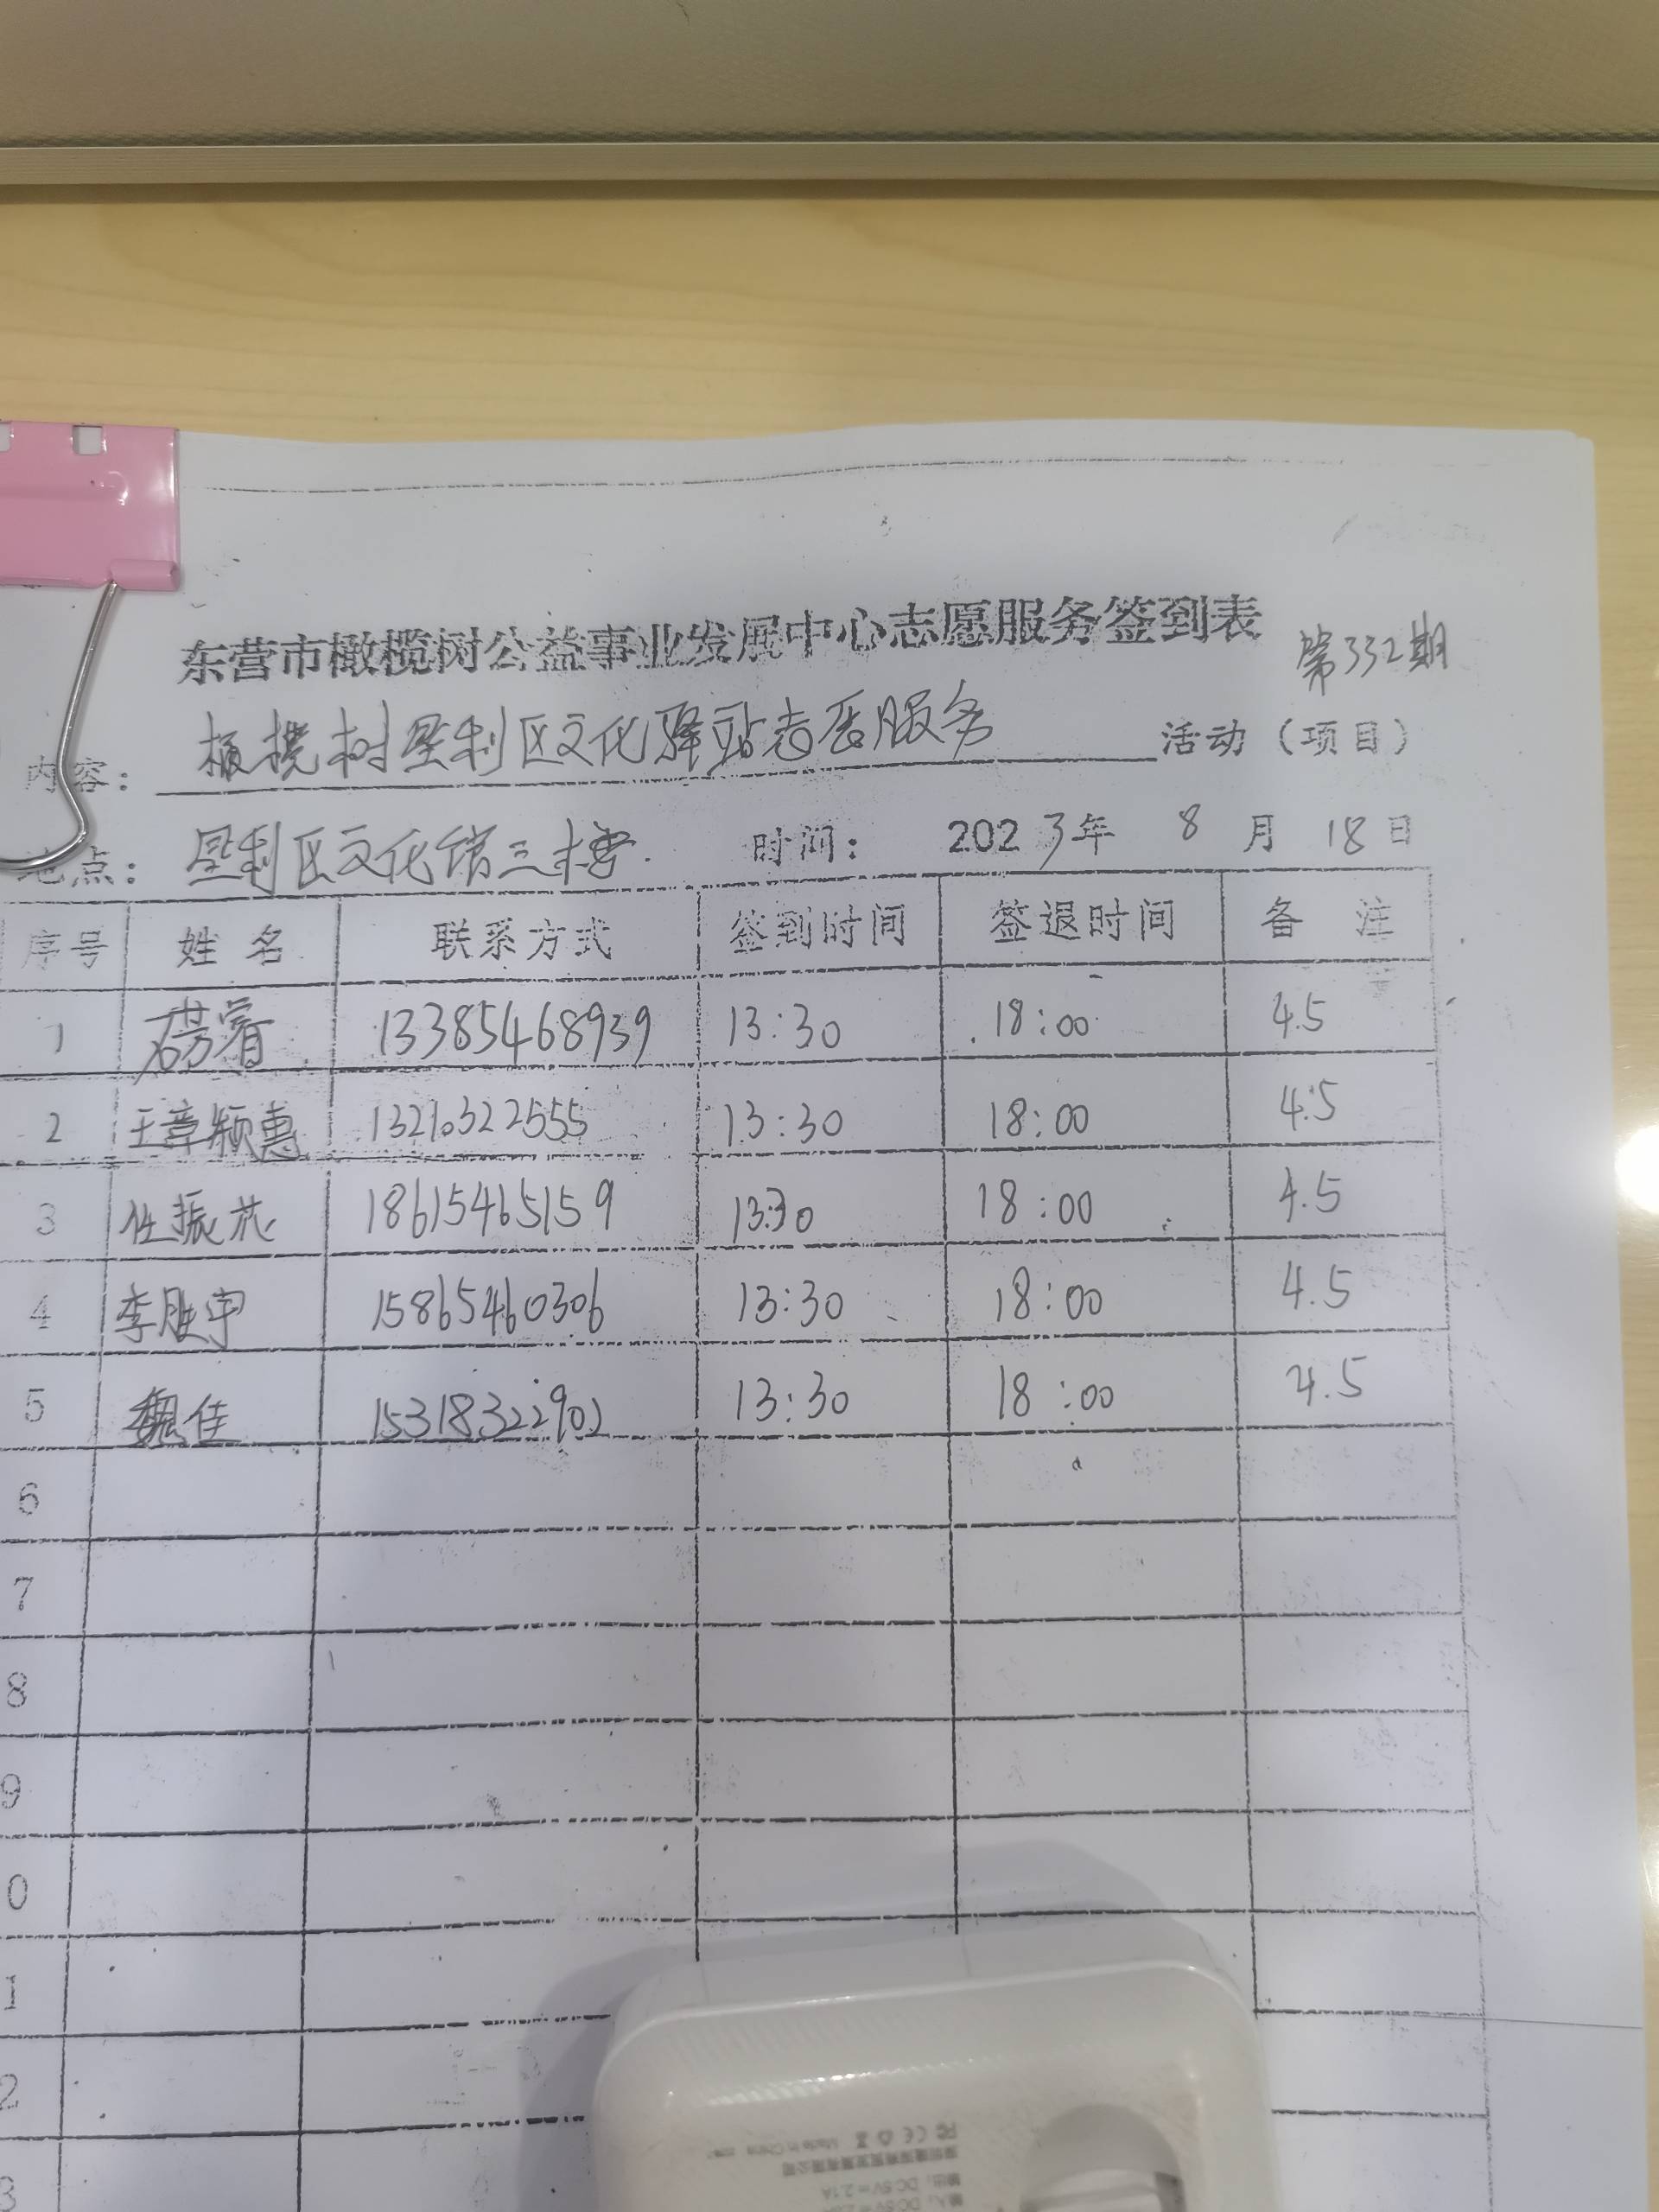 东营市橄榄树公益事业发展中心志愿服务签到表 第332期
内容: 橄榄树垦利区文化驿站志愿服务 活动（项目）
地点: 垦利区文化馆三楼 时间: 2023年 8 月 18日
序号 姓名 联系方式 签到时间 签退时间 备 注
1 13385468939 13:30 18:00 4.5
2 王章颖惠 13210322555 13:30 18:00 4.5
3 任振芯 18615465159 13:30 18:00 4.5
4 李胜宇 15865460306 13:30 18:00 4.5
5 魏佳 15318322902 13:30 18:00 4.5
6
7
8
9
0
1
2
3
Made in China